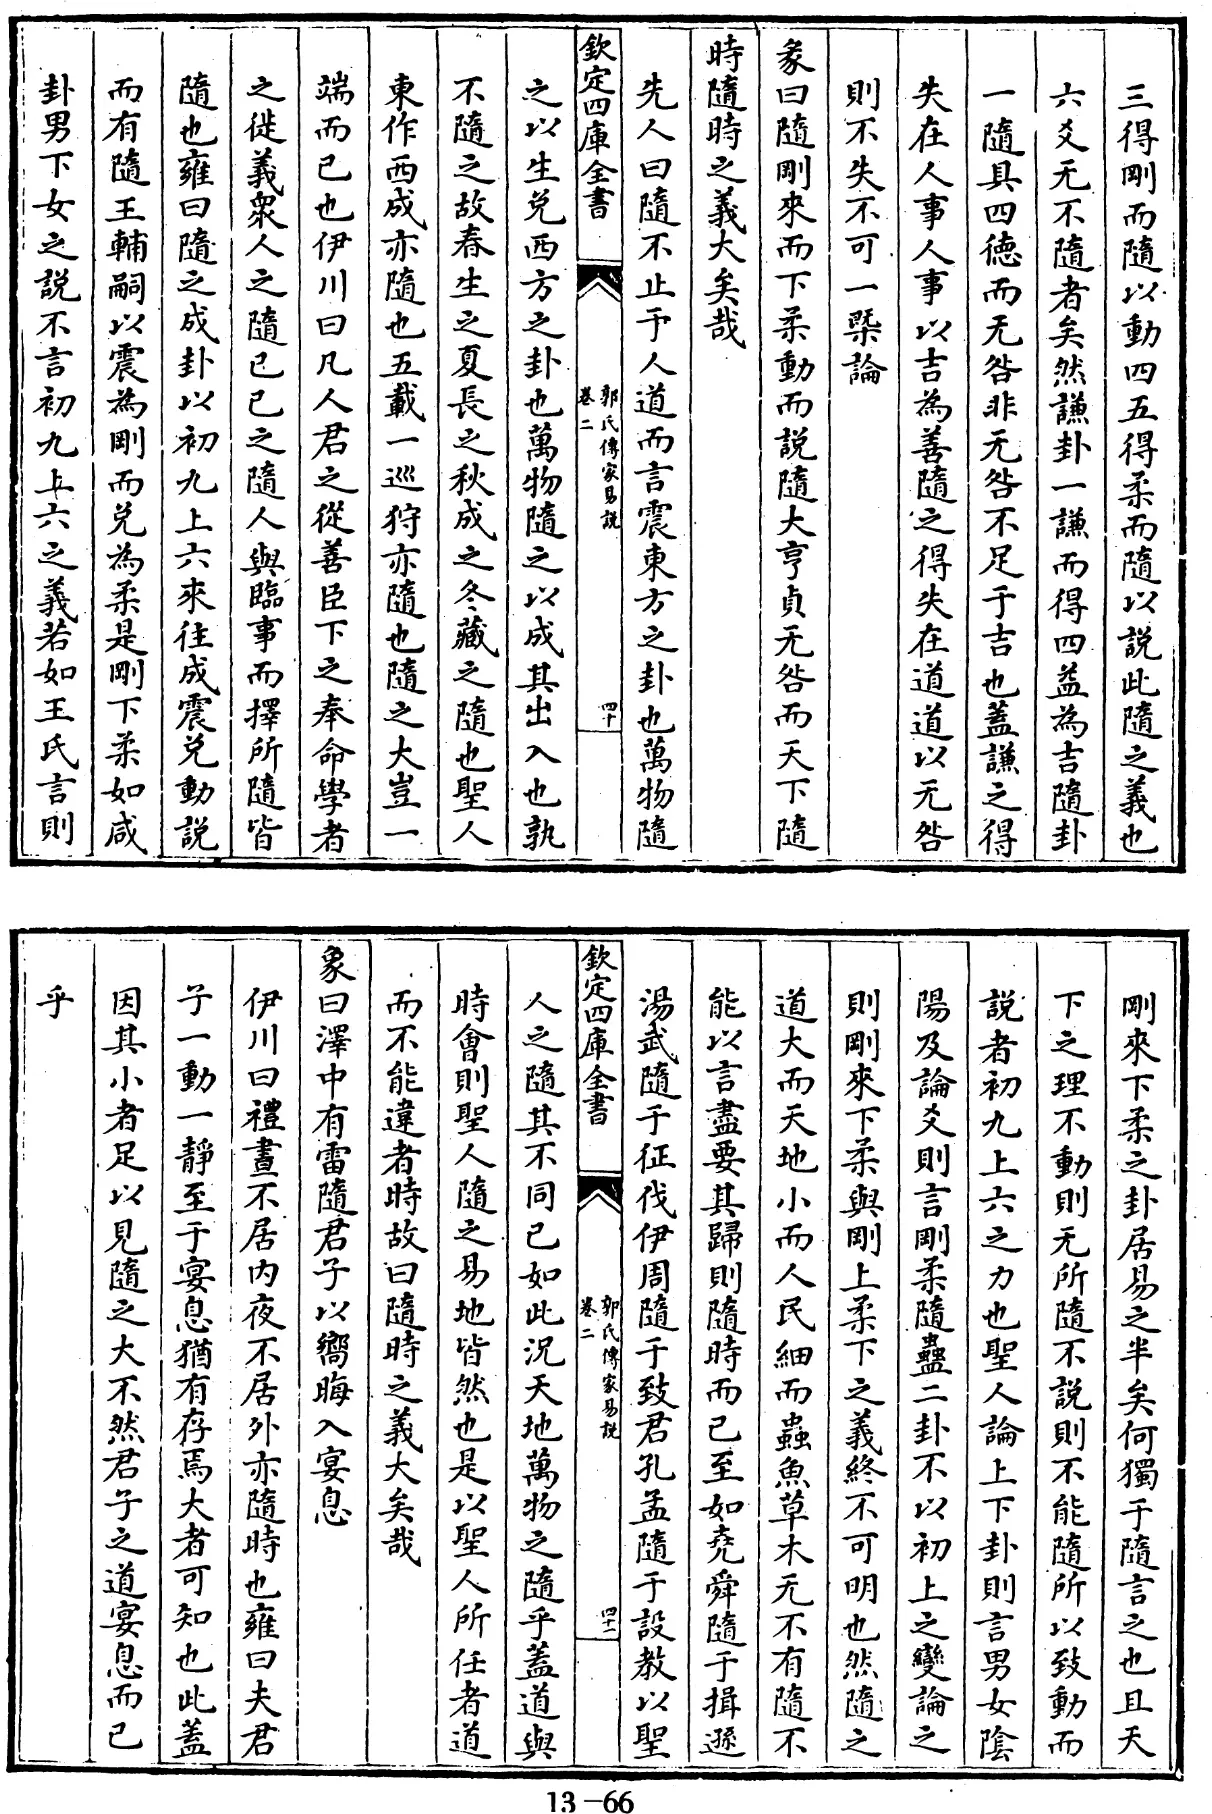 三得剛而隨以動四五得柔而隨以説此隨之義也
六爻无不隨者矣然謙卦一謙而得四益為吉隨卦
一隨具四德而无咎非无咎不足于吉也蓋謙之得
失在人事人事以吉為善隨之得失在道道以无咎
則不失不可一槩論
彖曰隨剛來而下柔動而説隨大亨貞无咎而天下隨
時隨時之義大矣哉
先人曰隨不止于人道而言震東方之卦也萬物隨
欽定四庫全書
郭氏傳家易説
卷二
四十
之以生兑西方之卦也萬物隨之以成其出入也孰
不隨之故春生之夏長之秋成之冬藏之隨也聖人
東作西成亦隨也五載一巡狩亦隨也隨之大豈一
端而已也伊川曰凡人君之從善臣下之奉命學者
之徙義衆人之隨已已之隨人與臨事而擇所隨皆
隨也雍曰隨之成卦以初九上六來往成震兑動説
而有隨王輔嗣以震為剛而兑為柔是剛下柔如咸
卦男下女之説不言初九上六之義若如王氏言則
剛來下柔之卦居易之半矣何獨于隨言之也且天
下之理不動則无所隨不説則不能隨所以致動而
説者初九上六之力也聖人論上下卦則言男女陰
陽及論爻則言剛柔隨蠱二卦不以初上之變論之
則剛來下柔與剛上柔下之義終不可明也然隨之
道大而天地小而人民細而蟲魚草木无不有隨不
能以言盡要其歸則隨時而已至如堯舜隨于揖遜
湯武隨于征伐伊周隨于致君孔孟隨于設教以聖
欽定四庫全書
郭氏傳家易説
卷二
四十一
人之隨其不同已如此況天地萬物之隨乎蓋道與
時會則聖人隨之易地皆然也是以聖人所任者道
而不能違者時故曰隨時之義大矣哉
象曰澤中有雷隨君子以嚮晦入宴息
伊川曰禮晝不居内夜不居外亦隨時也雍曰夫君
子一動一靜至于宴息猶有存焉大者可知也此蓋
因其小者足以見隨之大不然君子之道宴息而已
乎
13-66